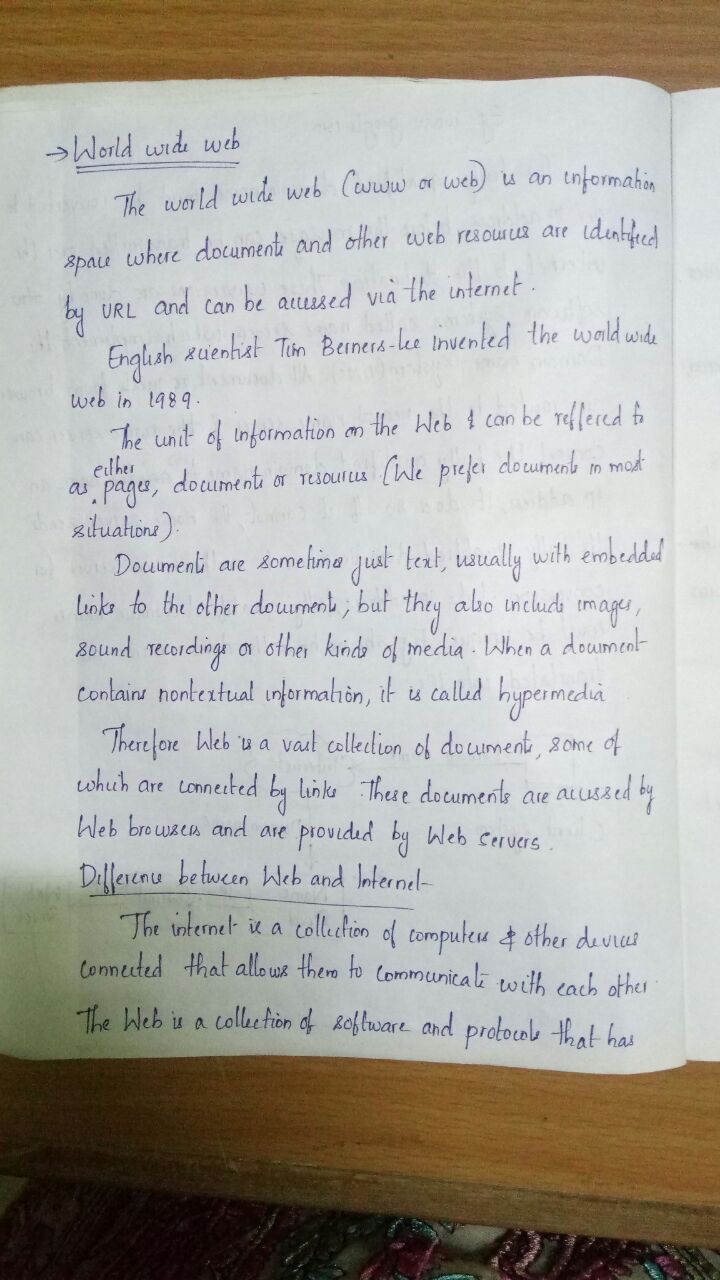 → World wide web
The world wide web (www or web) is an information
space where documents and other web resources are identified
by URL and can be accessed via the internet.
English scientist Tim Berners-Lee invented the world wide
web in 1989.
The unit of information on the Web & can be reffered to
as either pages, documents or resources. (We prefer documents in most
situations).
Documents are sometimes just text, usually with embedded
links to the other documents, but they also include images,
sound recordings or other kinds of media. When a document
contains nontextual information, it is called hypermedia
Therefore Web is a vast collection of documents, some of
which are connected by links. These documents are accessed by
Web browsers and are provided by Web servers.
Difference between Web and Internet-
The internet is a collection of computers & other devices
connected that allows them to communicate with each other.
The Web is a collection of software and protocols that has